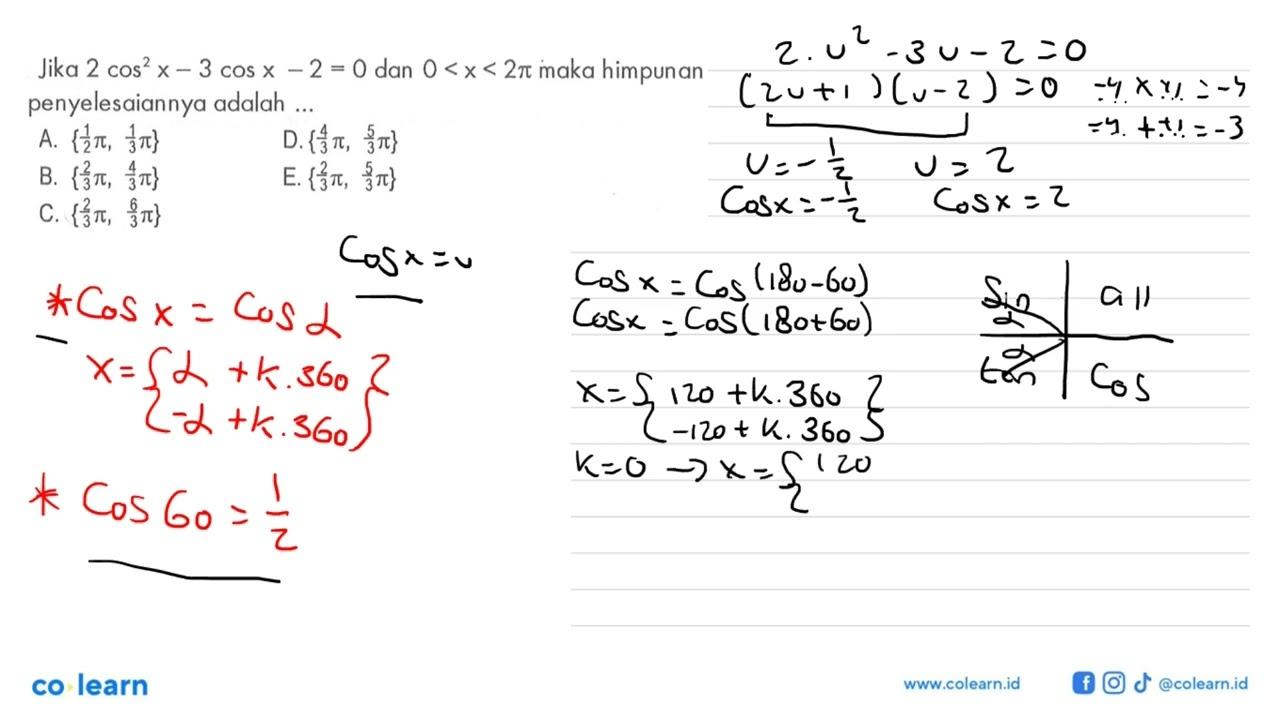 Jika 2 cos² x – 3 cos x – 2 = 0 dan 0 < x < 2π maka himpunan
penyelesaiannya adalah ...
A. {1/2 π, 1/3 π}
B. {2/3 π, 4/3 π}
C. {2/3 π, 6/3 π}
D. {4/3 π, 5/3 π}
E. {2/3 π, 5/3 π}
2.u² - 3u - 2 = 0
(2u+1)(u-2) = 0
-4 x +1 = -4
-4 + +1 = -3
u = -1/2 u = 2
Cos x = -1/2 Cos x = 2
Cos x = u
* Cos x = Cos α
x = { α + k.360 }
{ -α + k.360 }
* Cos 60 = 1/2
Cos x = Cos (180-60)
Cos x = Cos (180+60)
x = { 120 + k.360 }
{ -120 + k.360 }
k=0 → x = { 120
Sin all
α
α
tan Cos
co learn
www.colearn.id
@colearn.id